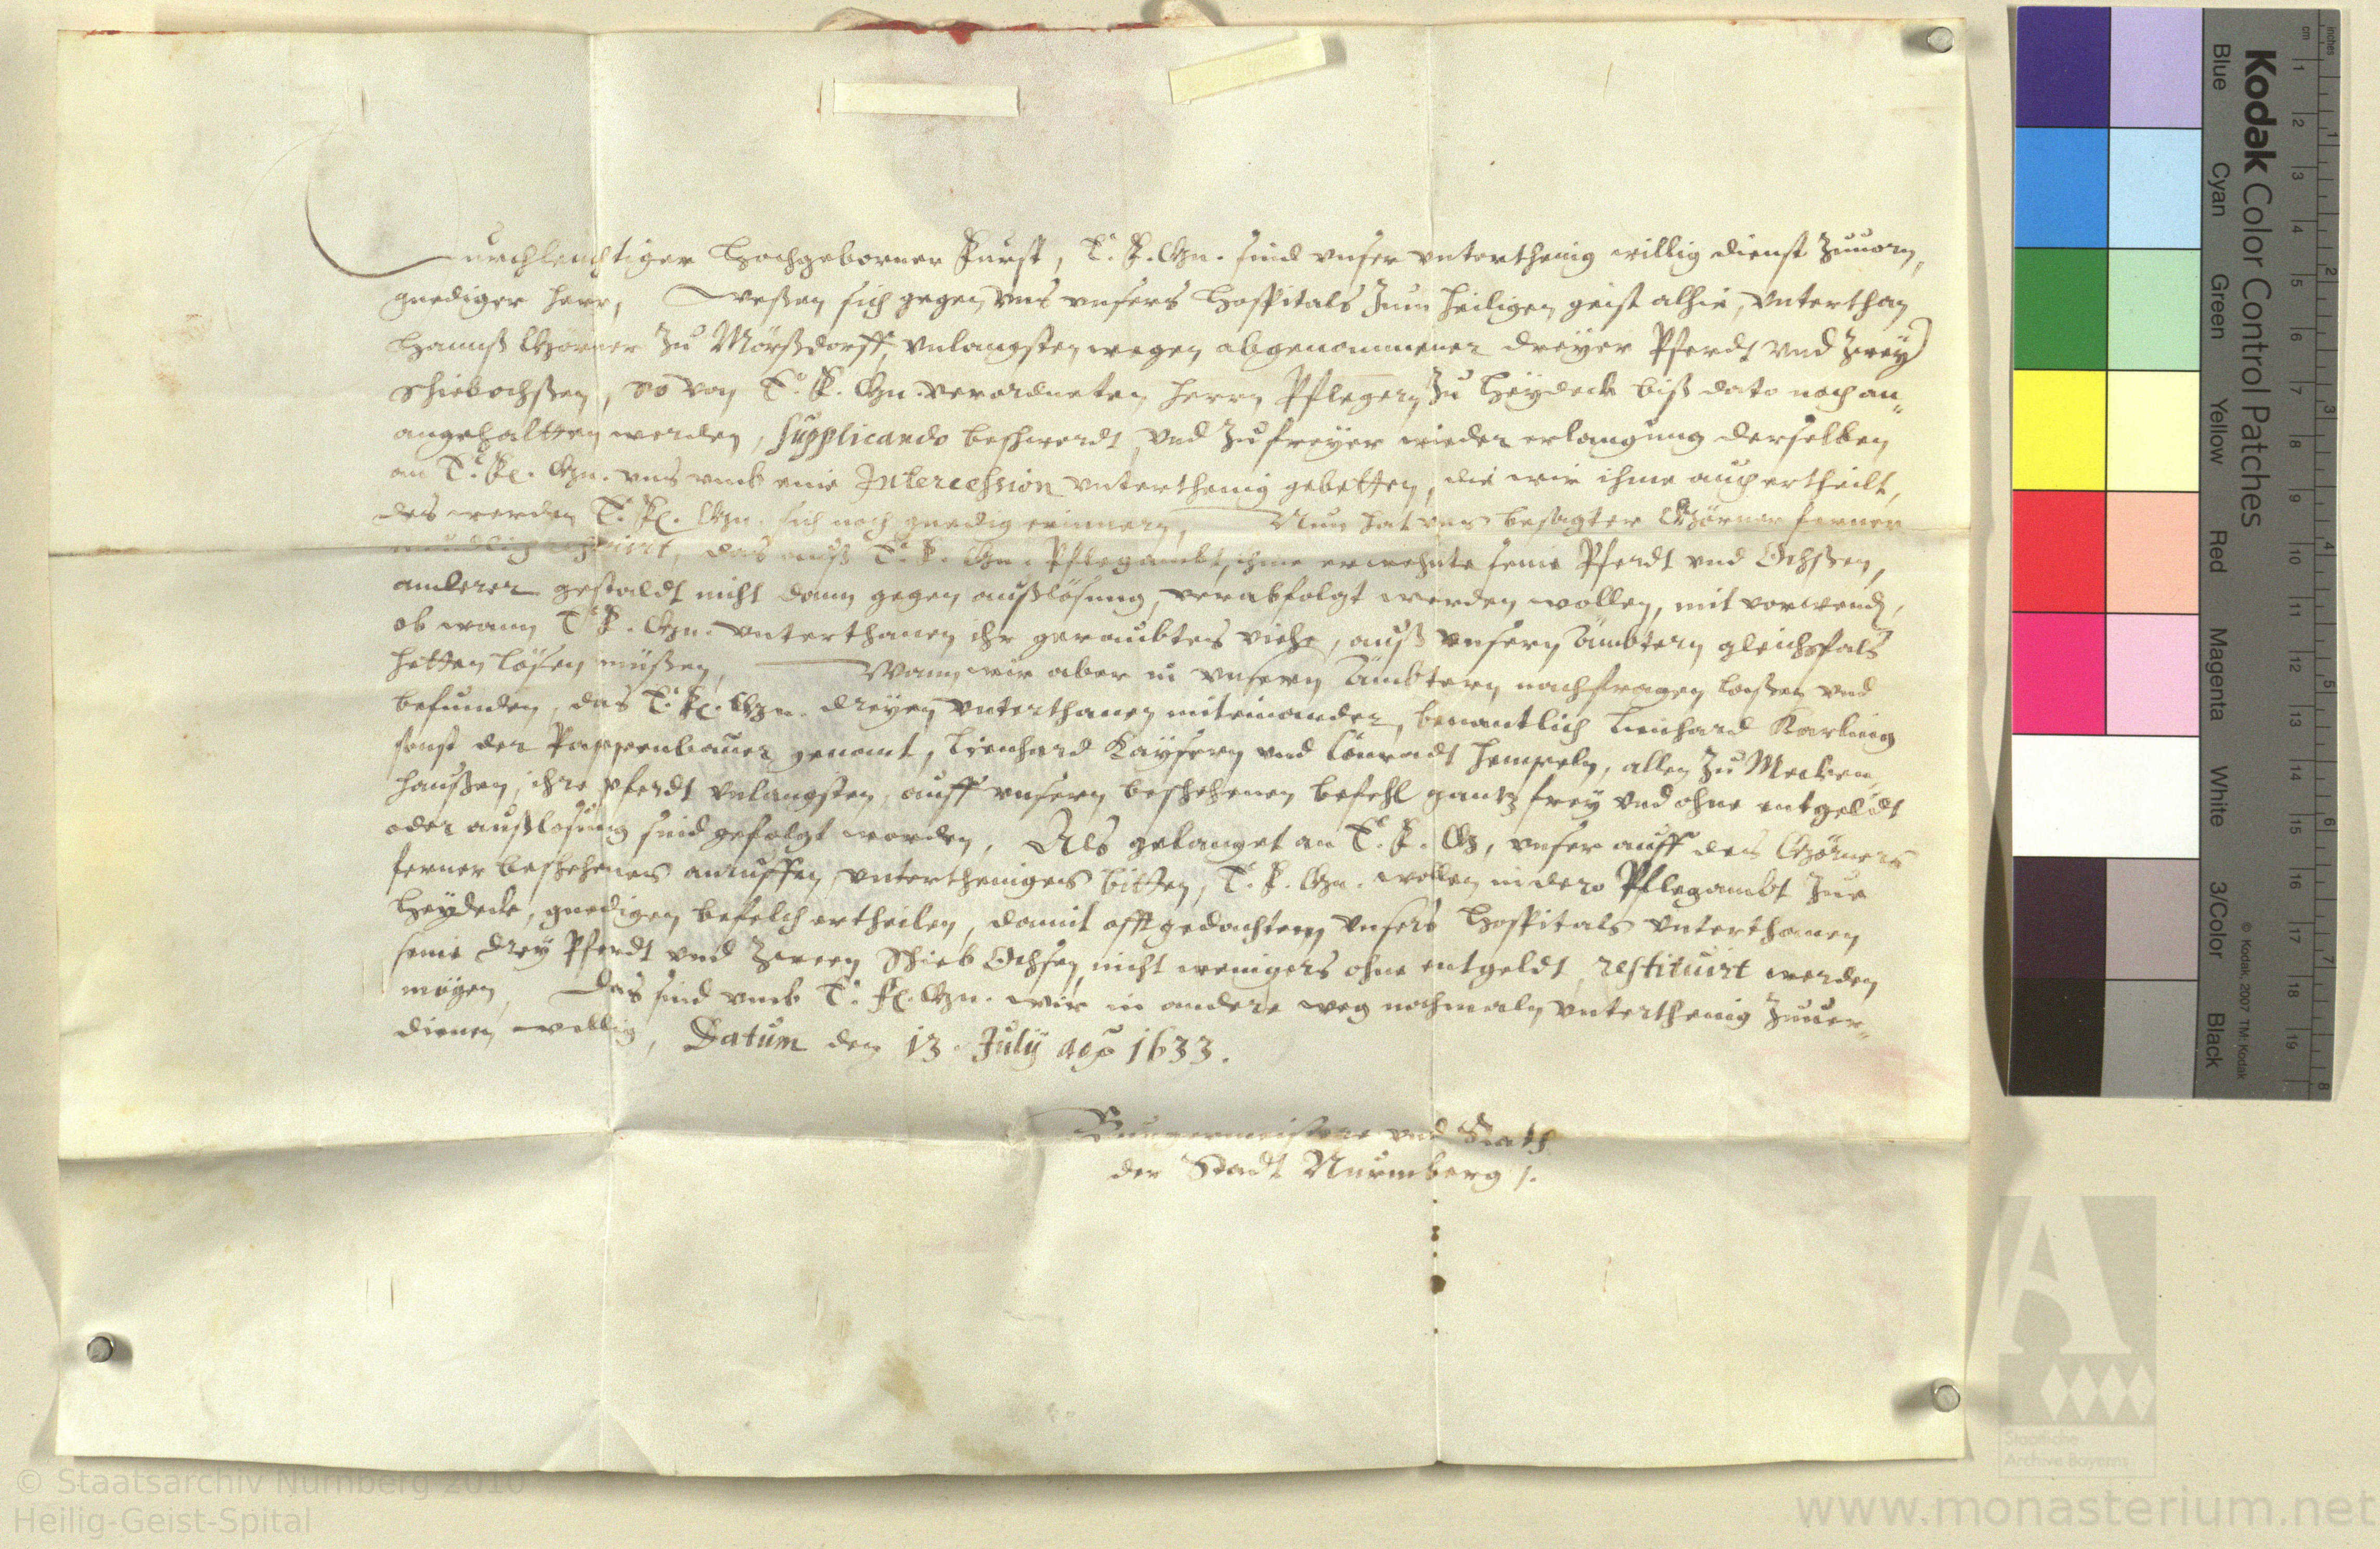 Durchleuchtiger Hochgeborner Furst, E. F. Gn. sind vnser vnterthenig willig dienst zuuorn,
gnediger herr, Weßen sich gegen vns vnsers Hospitals zum heiligen geist alhie, vnterthan
Hannß Görner zu Mörßdorff, vnlangsten wegen abgenommener dreyer Pferdt vnd zwey
schiebochßen, so von E. F. Gn. verordneten herrn Pflegern zu Heydeck biß dato noch an-
angehaltten werden, supplicando beschwerdt, vnd zu freyer wieder erlangung derselben
an E. Fl. Gn. vns vmb eine Intercession vnterthenig gebetten, die wir ihme auch ertheilt,
des werden E. Fl. Gn. sich noch gnedig erinnern, Nun hat vns besagter Görner ferner
das auß E. F. Gn. Pflegambt, ihme erwehnte seine Pferdt vnd Ochßen,
anderer gestaldt nicht dann gegen außlösung, verabfolgt werden wollen, mit vorwend,
ob wann E. F. Gn. vnterthanen ihr geraubtes viehe, auß vnsern Ämbtern gleichsfals
hetten lösen müßen, Wann wir aber in vnsern Ämbtern nachfragen laßen vnd
befunden, das E. Fl. Gn. dreyen vnterthanen miteinander, benantlich Lienhard Karling
sonst der Pappenbauer genant, Lienhard Kaysern vnd Conradt Hempeln, allen zu Mecken-
haußen, ihre pferdt vnlangsten, auff vnsern beschehenen befehl gantz frey vnd ohne entgeldt
oder außlosung sind gefolgt worden, Als gelanget an E. F. G, vnser auff des Görners
ferner beschehenes anruffen, vntertheniges bitten, E. F. Gn. wollen in dero Pflegambt zue
Heydeck, gnedigen befelch ertheilen, damit offtgedachtem vnsers Hospitals vnterthanen
seine drey Pferdt vnd zween Schieb Ochsen, nicht wenigers ohne entgeldt, restituirt werden
mögen, Das sind vmb E. Fl. Gn. wir in andere weg nochmaln vnterthenig zuuer-
dienen willig, Datum den 13. July ao 1633.
Burgermeistere vnd Rath
der Stadt Nurmberg /.
Kodak Color Control Patches
Blue Cyan Green Yellow Red Magenta White 3/Color Black
© Kodak, 2007 TM: Kodak
inches 1 2 3 4 5 6 7 8
cm 1 2 3 4 5 6 7 8 9 10 11 12 13 14 15 16 17 18 19
Staatliche
Archive Bayerns
© Staatsarchiv Nürnberg 2010
Heilig-Geist-Spital
www.monasterium.net